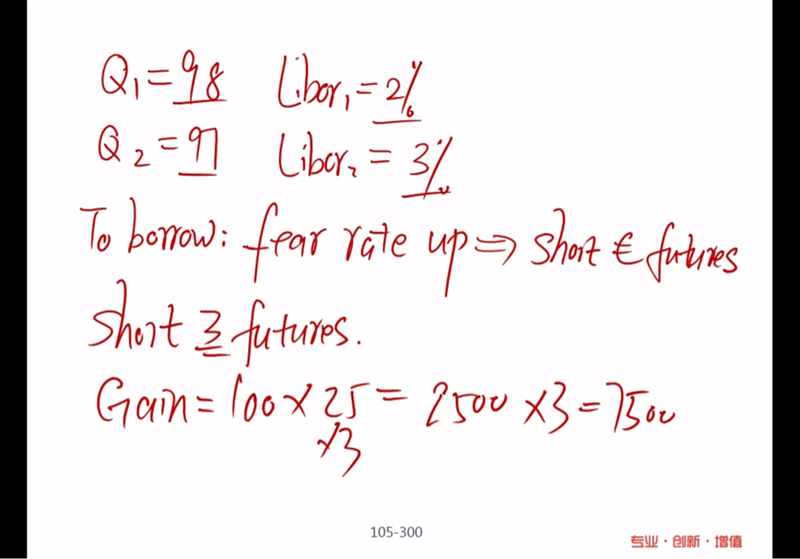 Q₁ = 98 Libor₁ = 2%
Q₂ = 97 Libor₂ = 3%
To borrow: fear rate up ⇒ short € futures
Short 3 futures.
Gain = 100 × 25 = 2500 × 3 = 7500
×3
105-300
专业·创新·增值